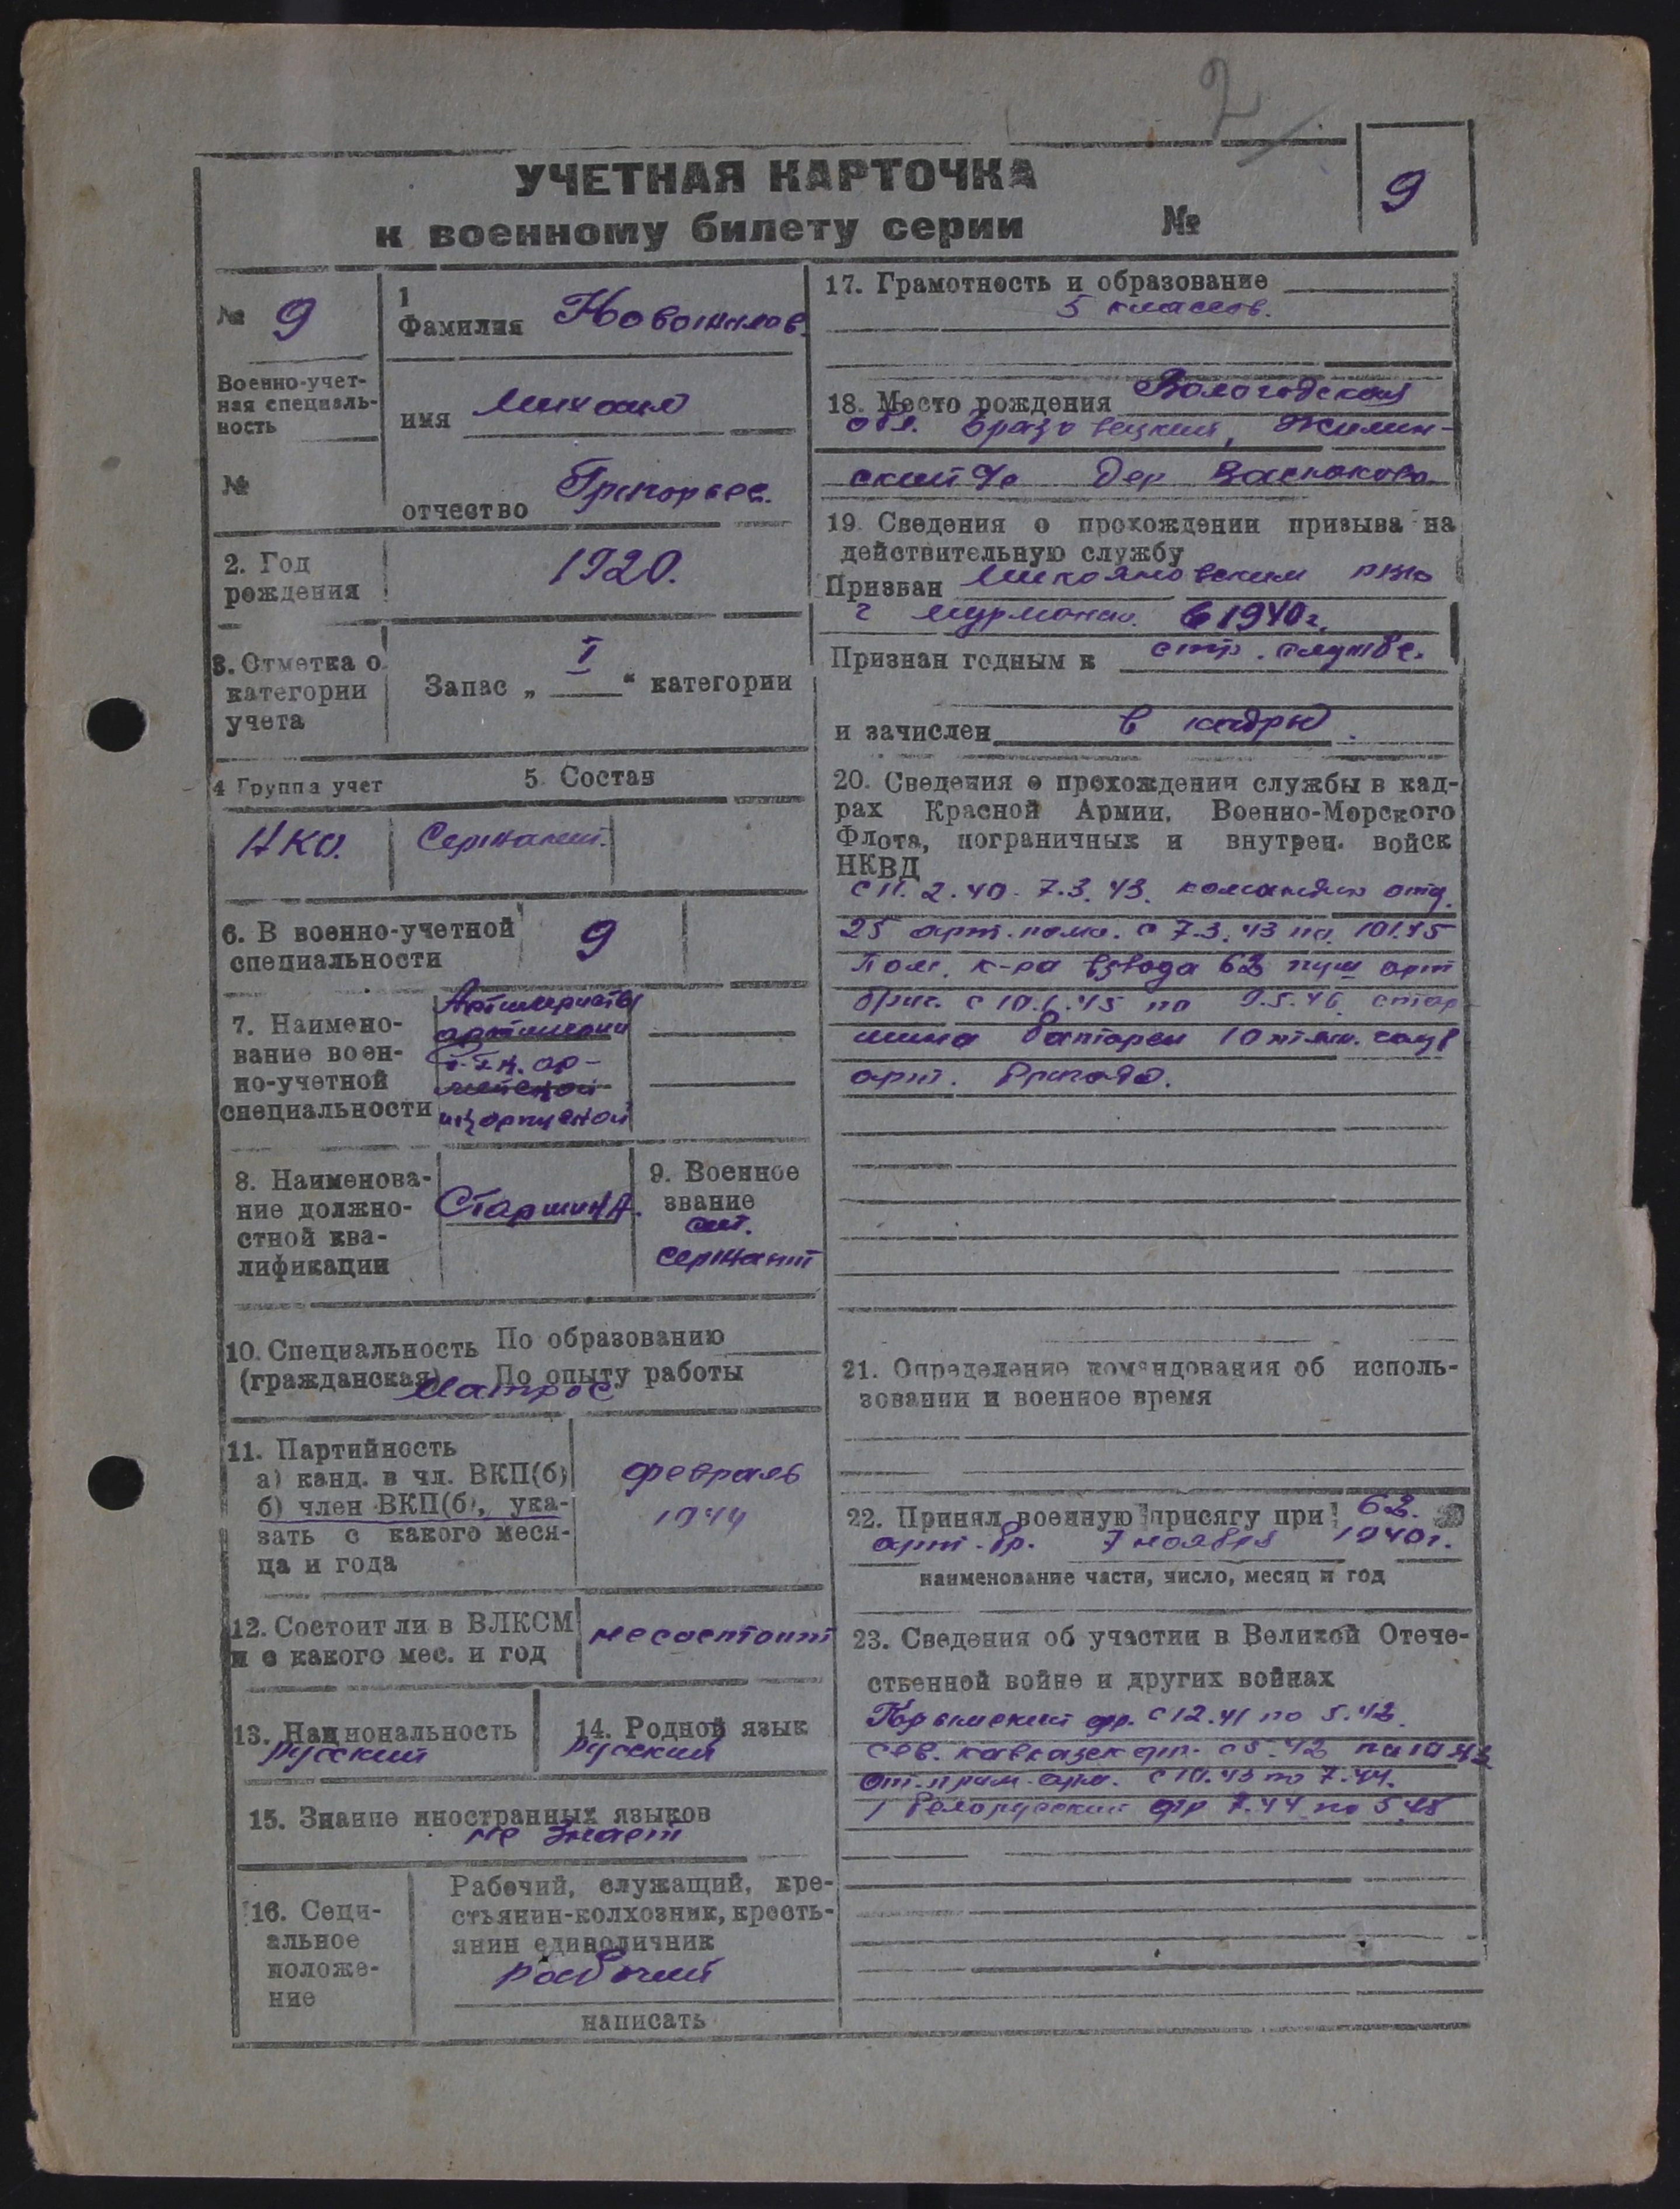 2
УЧЕТНАЯ КАРТОЧКА
к военному билету серии №
9
№ 9
1
Фамилия Новожилов
Военно-учет-
ная специаль-
ность
имя Михаил
№
отчество Григорьев.
2. Год
рождения
1920.
3. Отметка о
категории
учета
Запас „ I “ категории
4 Группа учет
5. Состав
НКО.
Сержант.
6. В военно-учетной
специальности
9
7. Наимено-
вание воен-
но-учетной
специальности
Артиллеристы
артиллерии
ар-
мейской
и корпусной
8. Наименова-
ние должно-
стной ква-
лификации
Старшина.
9. Военное
звание
ст.
сержант
10. Специальность По образованию
(гражданская) По опыту работы
матрос
11. Партийность
а) канд. в чл. ВКП(б)
б) член ВКП(б), ука-
зать с какого меся-
ца и года
февраль
1944
12. Состоит ли в ВЛКСМ
и с какого мес. и год
не состоит
13. Национальность
русский
14. Родной язык
русский
15. Знание иностранных языков
не знает
16. Соци-
альное
положе-
ние
Рабочий, служащий, кре-
стьянин-колхозник, кресть-
янин единоличник
рабочий
написать
17. Грамотность и образование
5 классов.
18. Место рождения Вологодская
обл. Жилин-
ский с/с дер Васюково
19. Сведения о прохождении призыва на
действительную службу
Призван Микояновским РВК
г Мурманск. в 1940 г.
Признан годным к стр. службе.
и зачислен в кадры.
20. Сведения о прохождении службы в кад-
рах Красной Армии, Военно-Морского
Флота, пограничных и внутрен. войск
НКВД
с 11. 2. 40 - 7. 3. 43. командир отд.
25 арт. полк. с 7.3.43 по 10.1.45
пом. к-ра взвода 62 пуш арт
бриг. с 10.1.45 по 9.5.46 стар
шина батареи 10 тяж. гауб
арт. бригада.
21. Определение командования об исполь-
зовании в военное время
22. Принял военную присягу при 62.
арт. бр. 7 ноября 1940 г.
наименование части, число, месяц и год
23. Сведения об участии в Великой Отече-
ственной войне и других войнах
Крымский фр. с 12.41 по 5.42.
Сев. кавказск фр. с 5.42 по 10.43
От. прим. арм. с 10.43 по 7.44.
1 белорусский фр 7.44 по 5.45